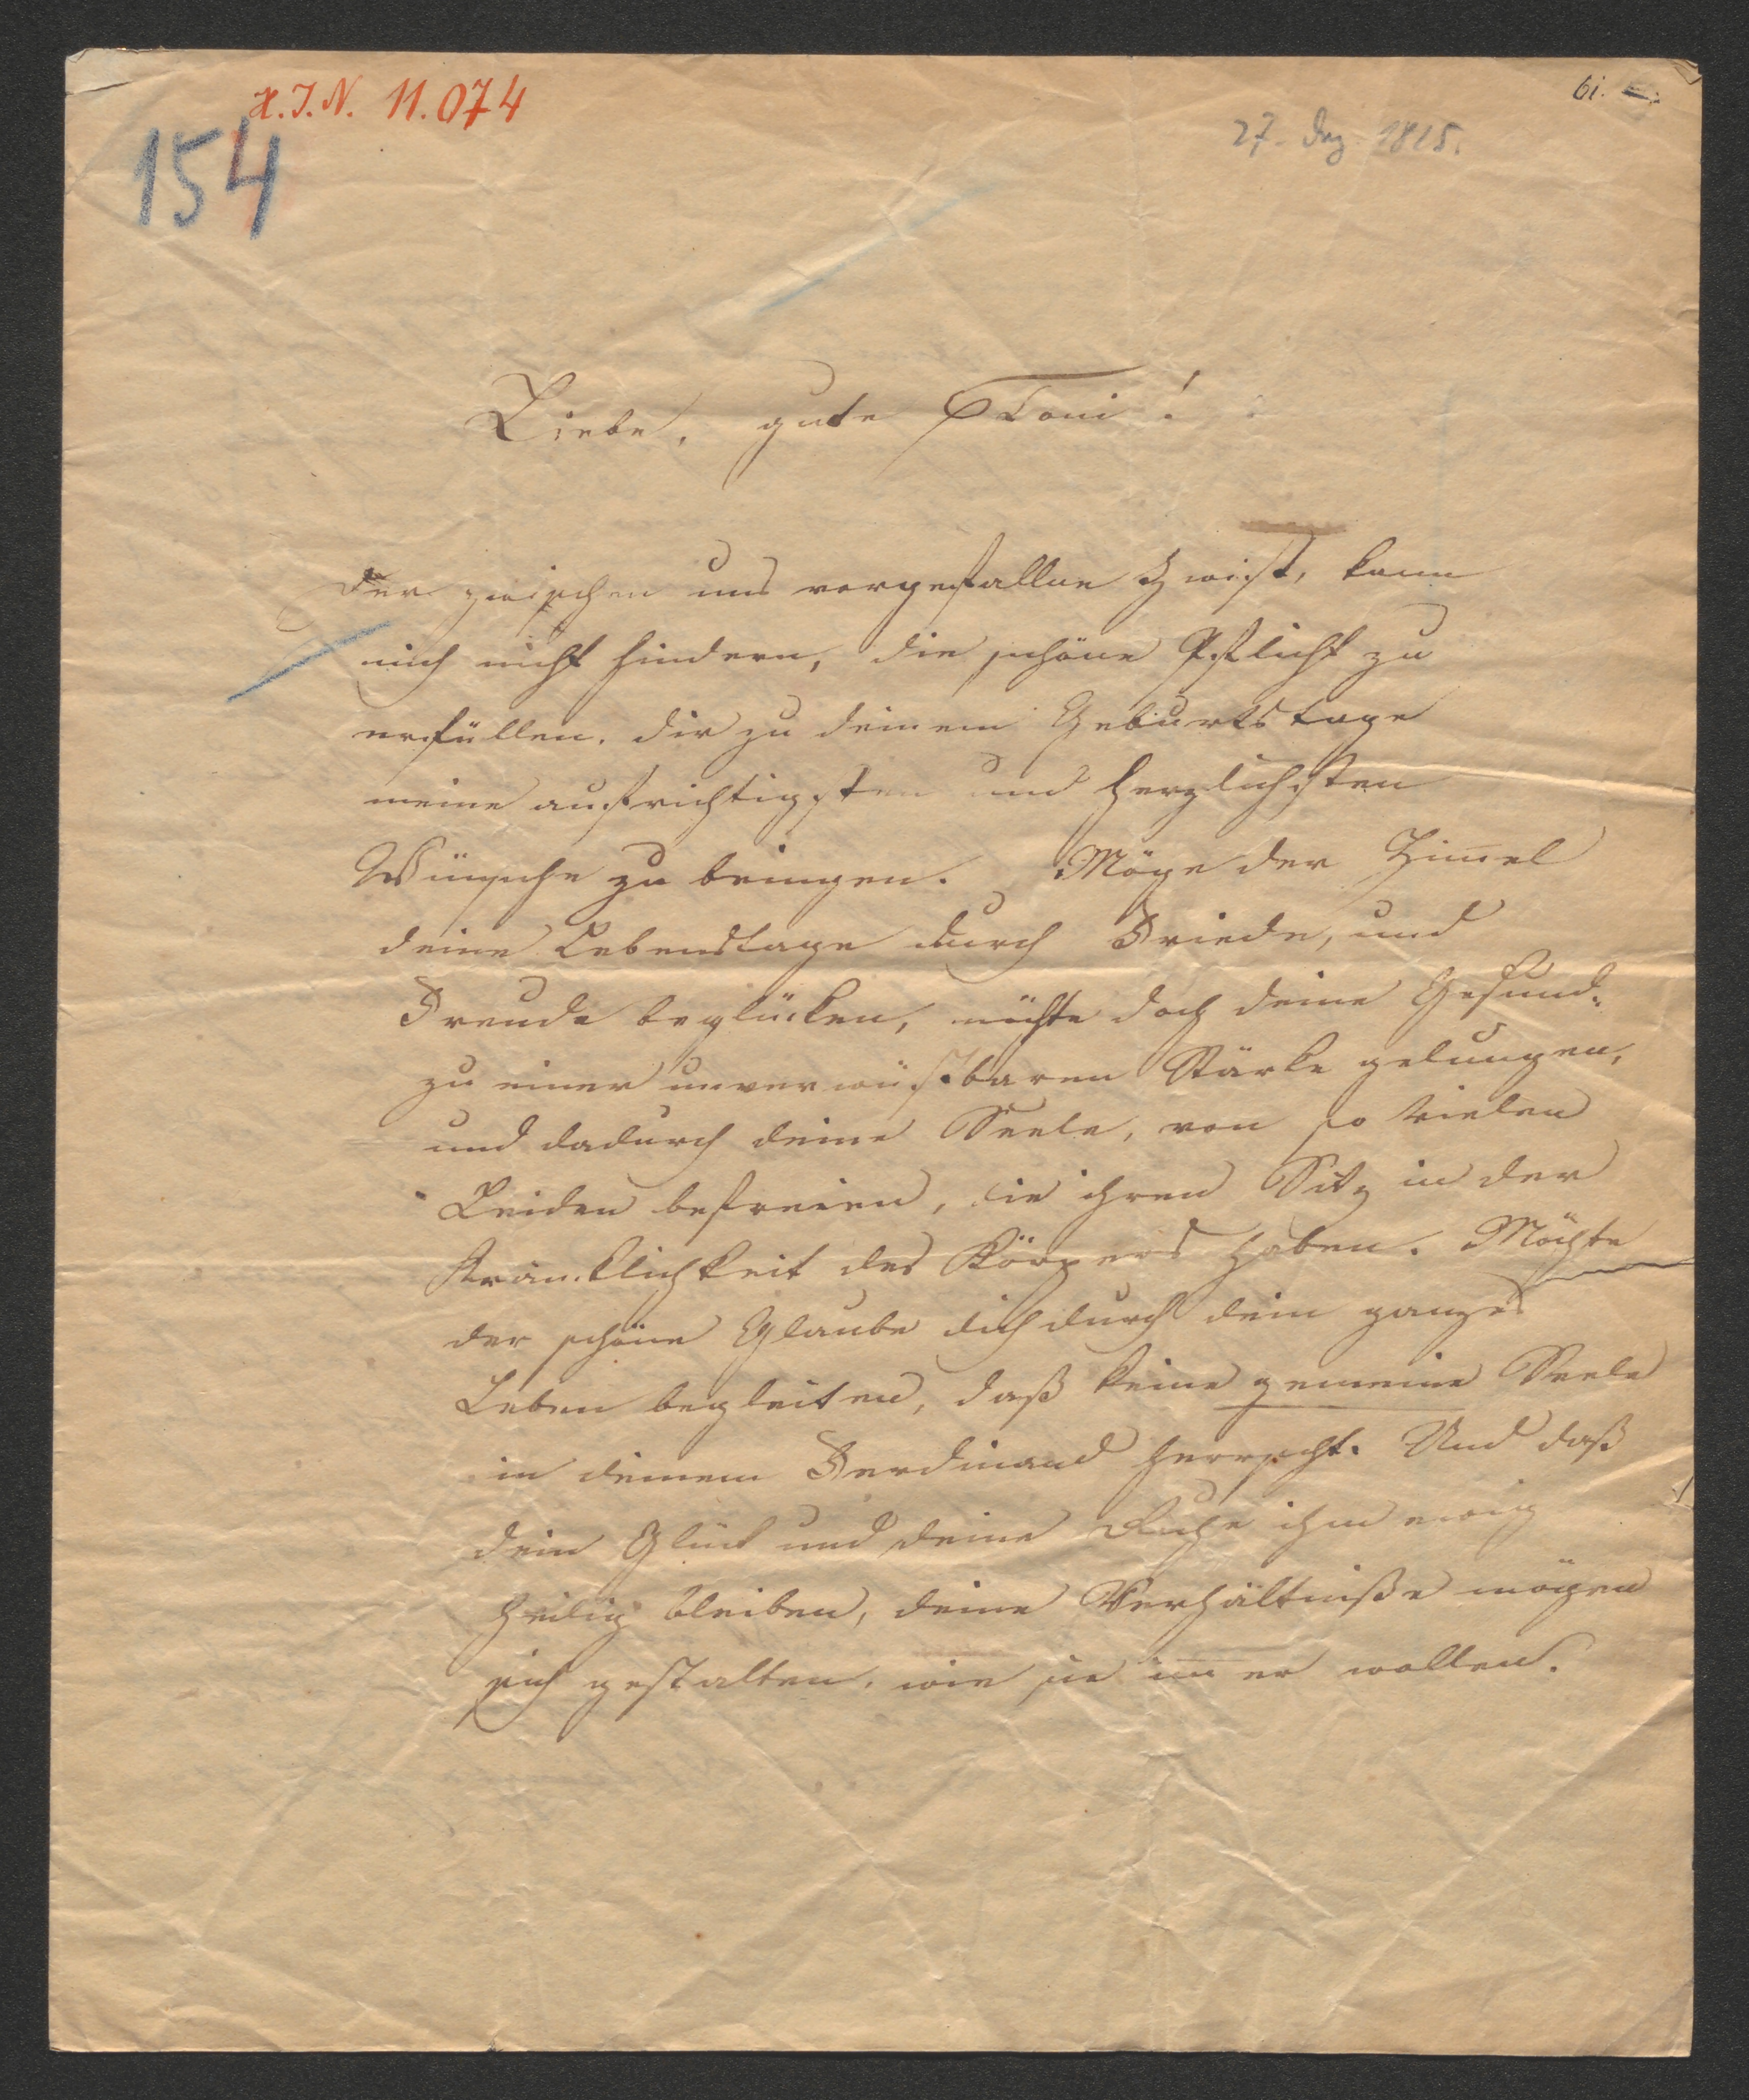 H.I.N. 11.074
61.
27. Dez 1825.
154
Liebe, gute Toni!
Der zwischen uns vorgefallne Zwist, kann
mich nicht hindern, die schöne Pflicht zu
erfüllen, dir zu deinem Geburtstage
meine aufrichtigsten und herzlichsten
Wünsche zu bringen. Möge der Him̅el
deine Lebenstage durch Friede, und
Freude beglücken, möchte doch deine Gesund-
zu einer unverwüstbaren Stärke gelangen,
und dadurch deine Seele, von so vielen
Leiden befreien, die ihren Sitz in der
Kränklichkeit des Körpers haben. Möchte
der schöne Glaube dich durch dein ganzes
Leben begleiten, daß keine gemeine Seele
in deinem Ferdinand herrscht. Und daß
dein Glück und deine Ruhe ihm ewig
heilig bleiben, deine Verhältniße mögen
sich gestalten, wie sie im̅er wollen.